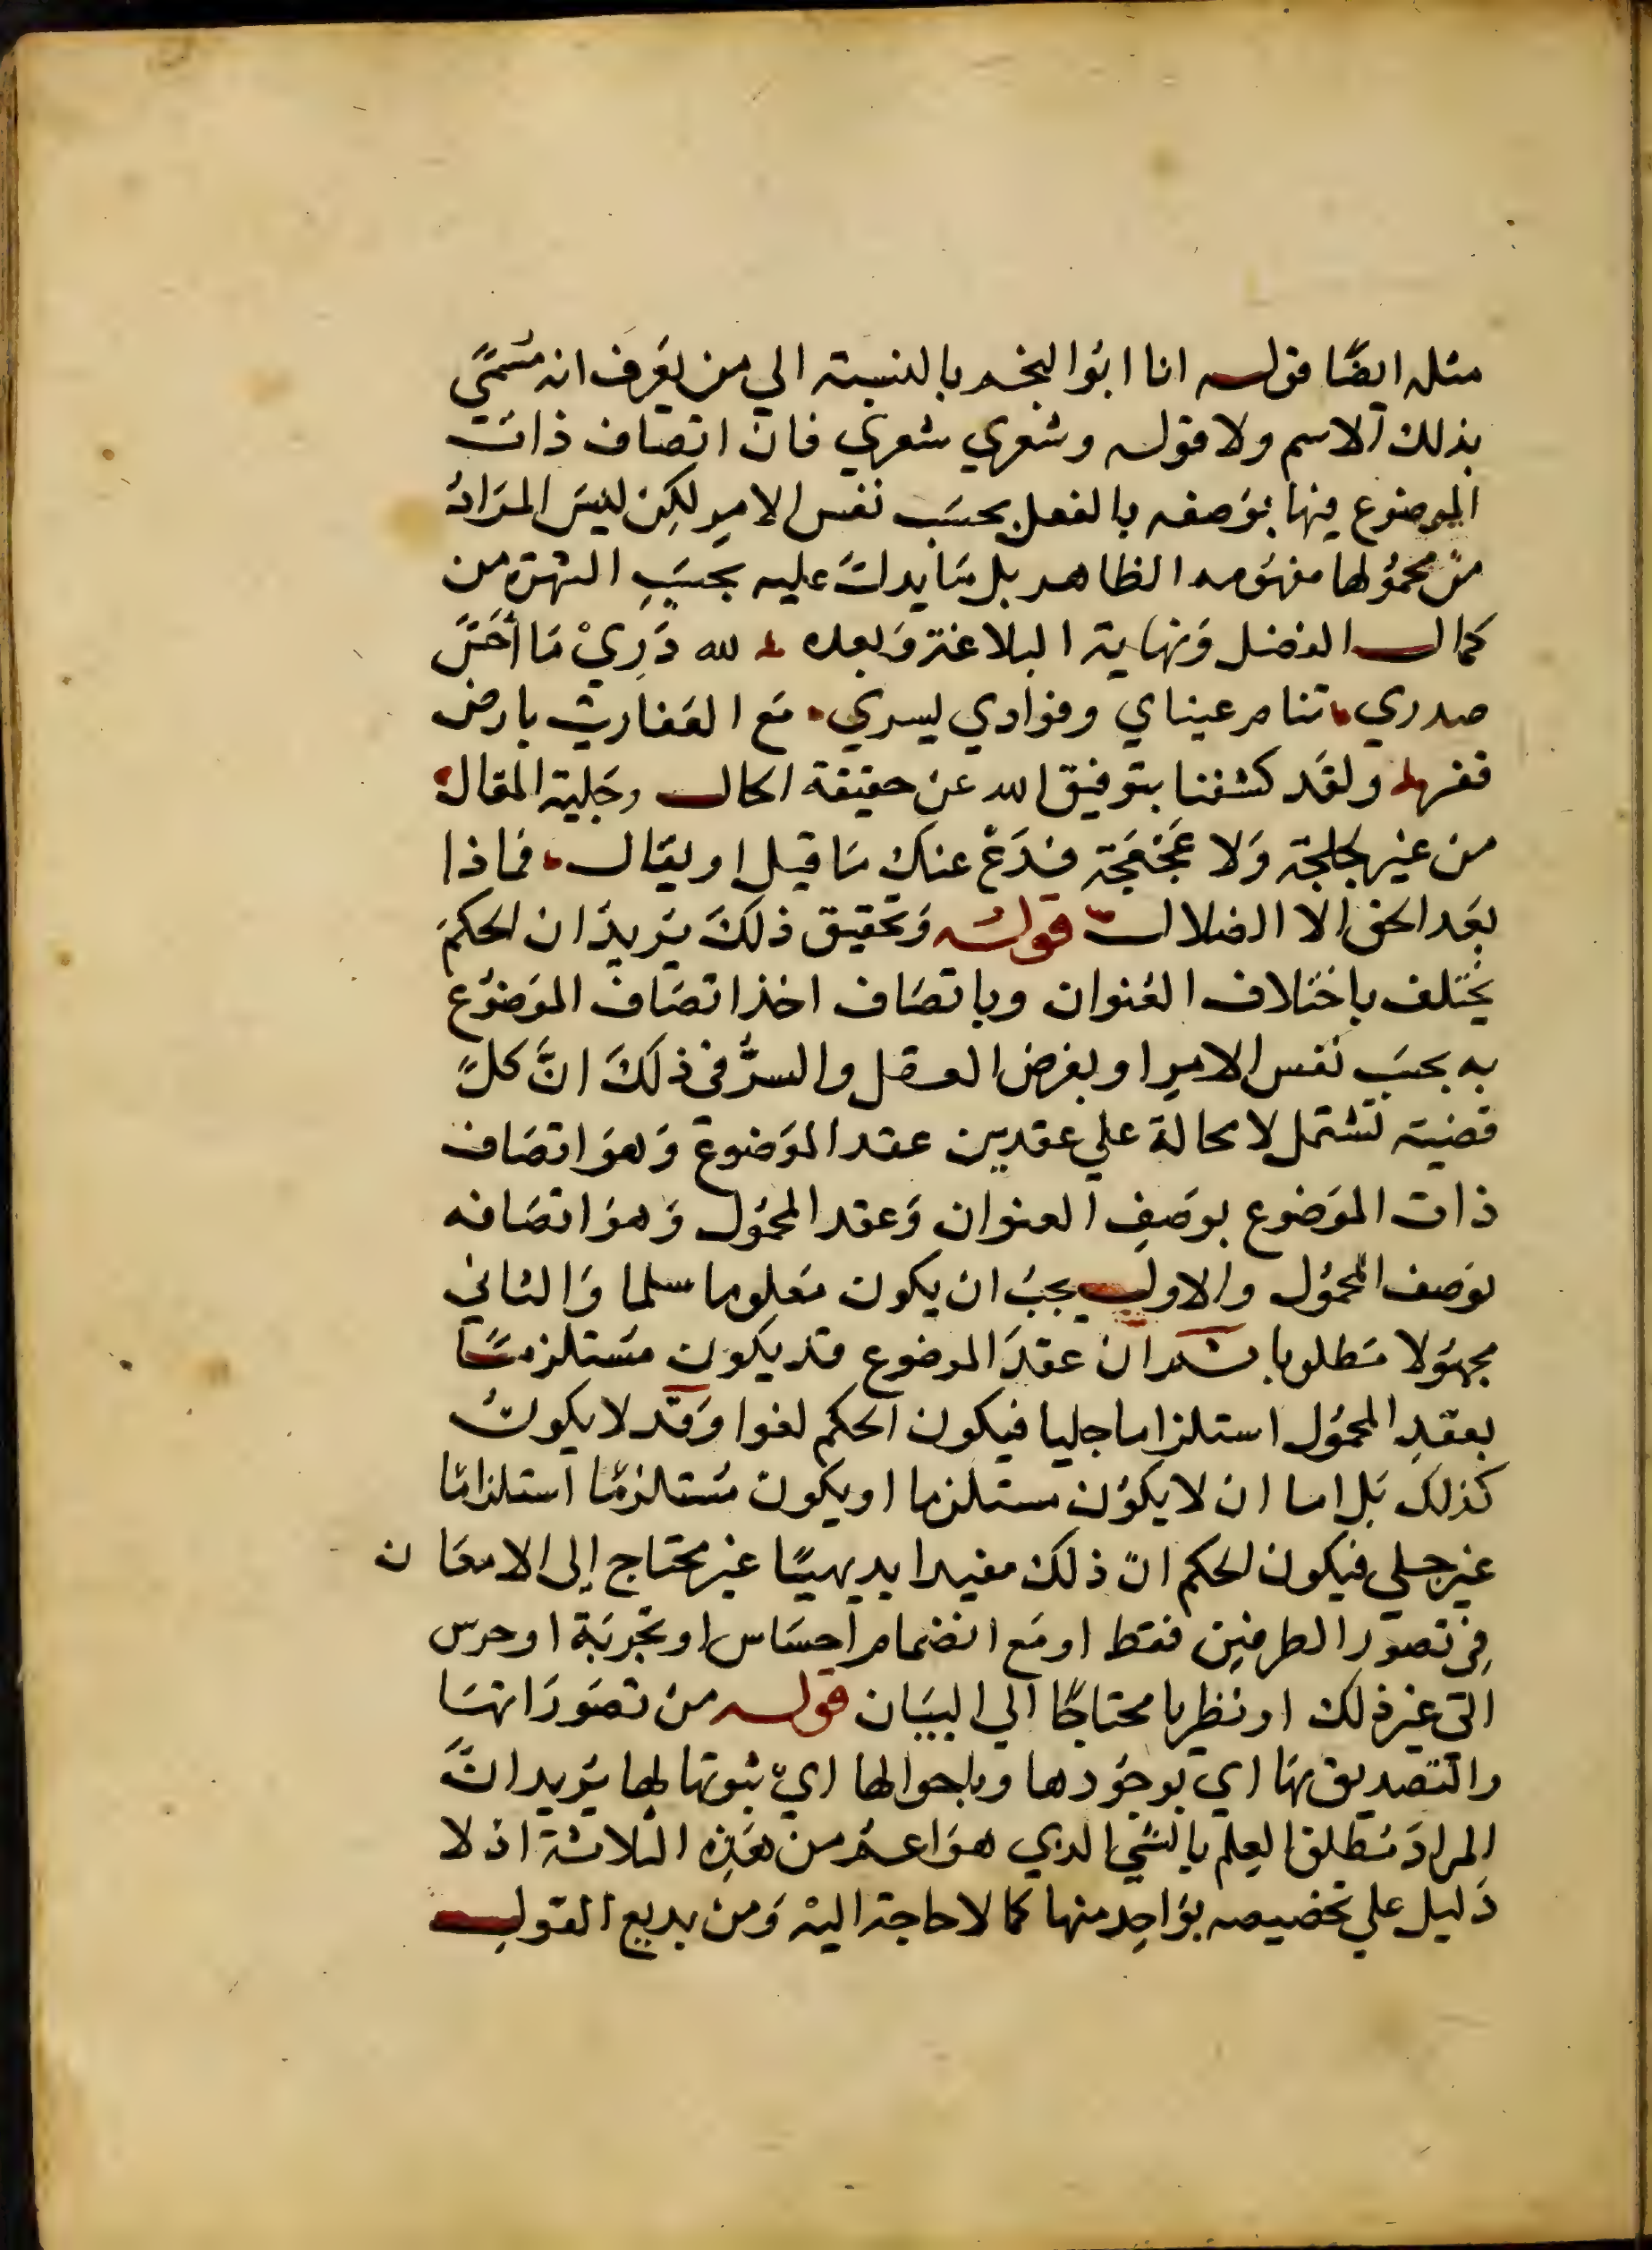 مثله ايضًا قوله انا ابو النجم بالنسبة الي من يعَرف انه مسَمًي
بذلك الاسم ولا قوله وشعري شعري فان اتصاف ذات
الموضوع فيها بوَصفه بالفعل بحسَب نفس الامر لكِن ليسَ المرَادُ
من محموُلها مفهوَمه الظاهر بل مَا يدل عليه بحسَبِ الشهرة من
كمال الفضل وَنهاية البلاغة وَبعده لله دَرِيْ مَا أحَسَّ
صدري تنام عيناي وفؤادي يسري مَع العَفاريت بارض
قفر ولقَد كشفنا بتوفيق الله عن حقيقة الحال وجَلية المقال
من غير لجلجة وَلا عَجْعَجَة فدَعْ عنك مَا قيل او يقال فماذا
بعَد الحق الا الضلال قوله وَتحقيق ذلكَ يرَيدُ ان الحكمَ
يختلف باختلاف العُنوان وباتصَاف اخذ اتصَاف الموَضوُع
به بحسَبِ نفس الامر او بفرض العقل والسرُّ في ذلكَ انَّ كلَّ
قضية تشتمل لا محالة علي عقدين عقد الموَضوع وَهوَ اتصَاف
ذات الموَضوع بوصَفِ العنوان وَعقد المحموُل وَهوَ اتصَافه
بوَصف المحموُل والاول يجبُ ان يكون مَعلوما مسلما وَالثاني
مجهوَلا مَطلوبا ثم ان عقدَ الموضوع قد يكون مسُتلزمًا
بعقدِ المحموُل استلزاما جليا فيكون الحكم لغوا وَقد لا يكونُ
كذلك بَل اما ان لا يكوُن مستلزما او يكون مسُتلزمًا استلزامًا
غير جلي فيكون الحكم ان ذلك مفيدا بديهيًا غير محتاج إلى الامعَان
في تصوّر الطرفين فقط او مَع انضمام احسَاس او تجربَة او حدس
التي غير ذلك او نظريا محتاجًا الي البيَان قوله من تصَورَاتها
والتصديق بهَا اي بوجوُدها وباحوالها اي ثبوتها لها يرَيد انَّ
المرادَ مُطلق العِلم بالشيَ الذي هوَ اعم من هَذِه الثلاثة اذ لا
دَليل علي تخصيصه بوَاحِد منها كما لا حاجة اليْه وَمن بديع القول